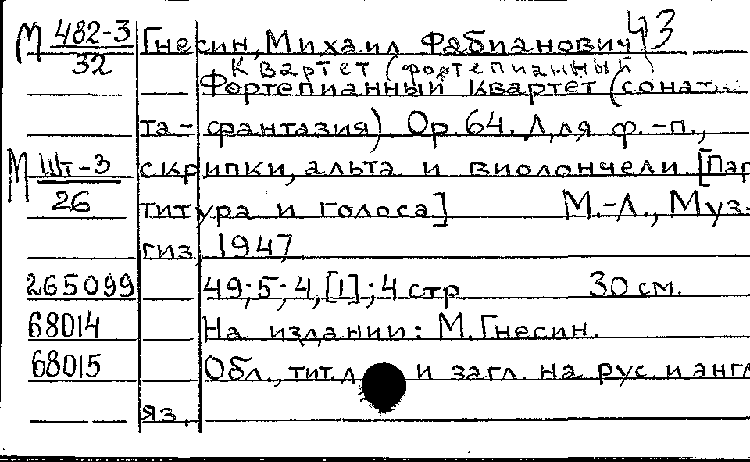 М 482-3 Гнесин, Михаил Фабианович 43
32 Квартет (фортепианный)
Фортепианный квартет (сона-
та-фантазия) Op. 64. Для ф.-п.,
М Шт-3 скрипки, альта и виолончели [Пар
26 титура и голоса] М.-Л., Муз-
гиз 1947
265099 49; 5; 4, [1]; 4 стр 30 см.
68014 На издании: М. Гнесин.
68015 Обл., тит. л и загл. на рус и англ
яз.